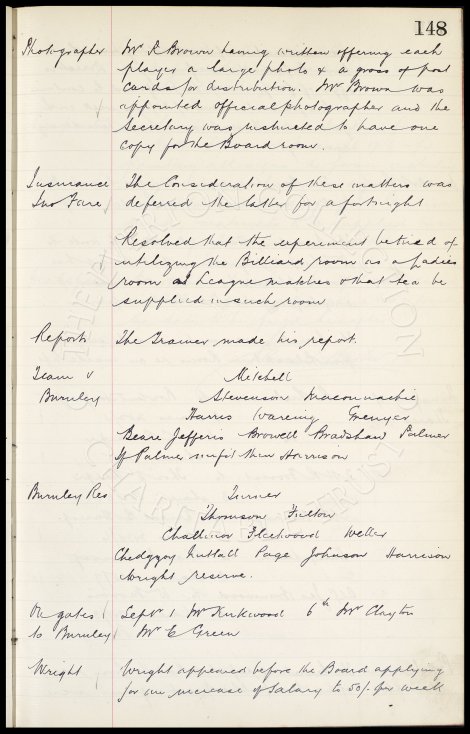 148
Photographer Mr R Brown having written offering each
player a large photo & a gross of post
cards for distribution. Mr Brown was
appointed official photographer and the
Secretary was instructed to have one
copy for the Boardroom.
Insurance The Consideration of these matters was
deferred the latter for a fortnight
Resolved that the experiment be tried of
utilizing the Billiard room as a Ladies
room at League matches & that tea be
supplied in such room
Reports The Trainer made his report.
Team v Mitchell
Burnley Stevenson Maconnachie
Harris Wareing Grenyer
Beare Jefferis Browell Bradshaw Palmer
If Palmer unfit then Harrison
Burnley Res Turner
Thomson Fulton
Challinor Fleetwood Weller
Chedgzoy Nuttall Page Johnson Harrison
Wright reserve.
On gates Septr 1 Mr Kirkwood 6th Mr Clayton
to Burnley Mr E Green
Wright Wright appeared before the Board applying
for an increase of Salary to 50/- per week